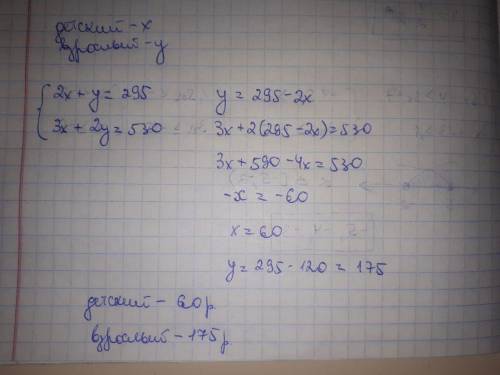 детский - x
взрослый - y
{ 2x + y = 295
3x + 2y = 530
y = 295 - 2x
3x + 2(295 - 2x) = 530
3x + 590 - 4x = 530
-x = -60
x = 60
y = 295 - 120 = 175
детский - 60 р.
взрослый - 175 р.